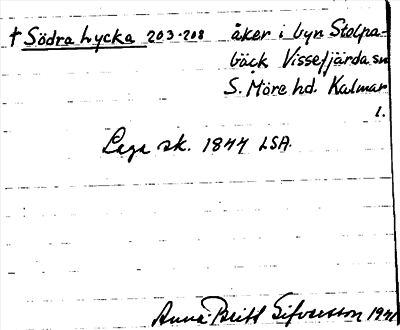 † Södra Lycka 203-208 åker i byn Stolpa-
bäck Vissefjärda sn
S. Möre hd. Kalmar
l.
Laga sk. 1844 LSA.
Anna-Britt Sifversson